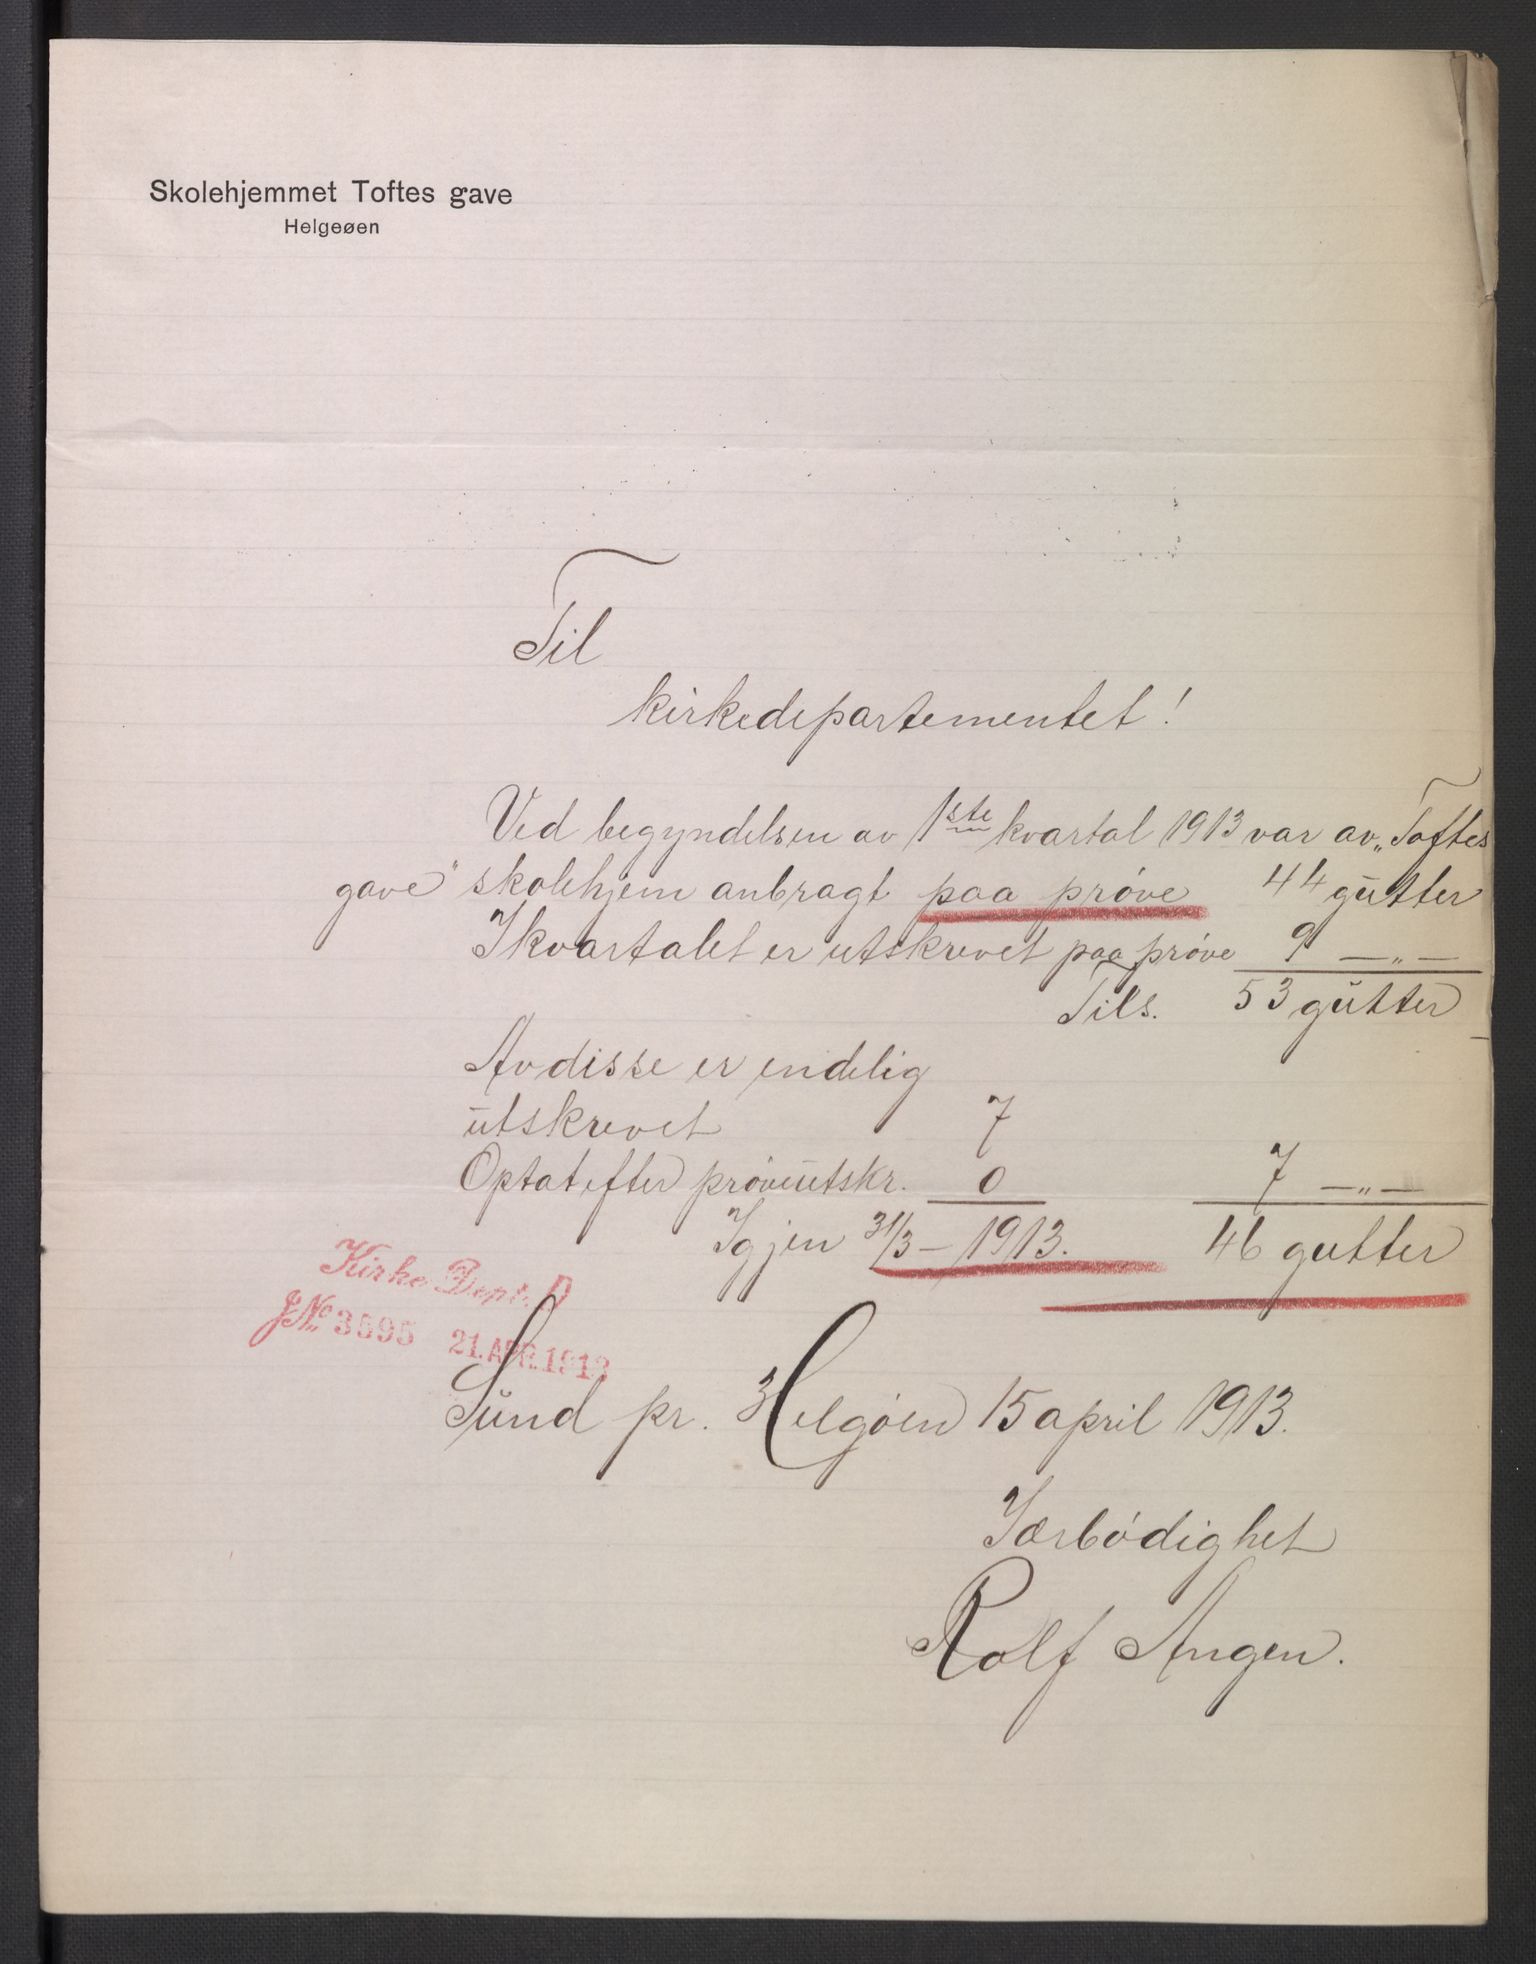 Skolehjemmet Toftes gave
Helgeøen
Til
kirkedepartementet!
Ved begyndelsen av 1ste kvartal 1913 var av „Toftes
gave" skolehjem anbragt paa prøve 44 gutter
I kvartalet er utskrevet paa prøve 9 —„—
Tils. 53 gutter
Av disse er endelig
utskrevet 7
Optat efter prøveutskr. 0 7 —„—
Igjen 31/3 – 1913. 46 gutter
Kirke Dept. D
J№ 3595 21.APR.1913
Sund pr. Helgøen 15 april 1913.
Ærbødighet
Rolf Angen.